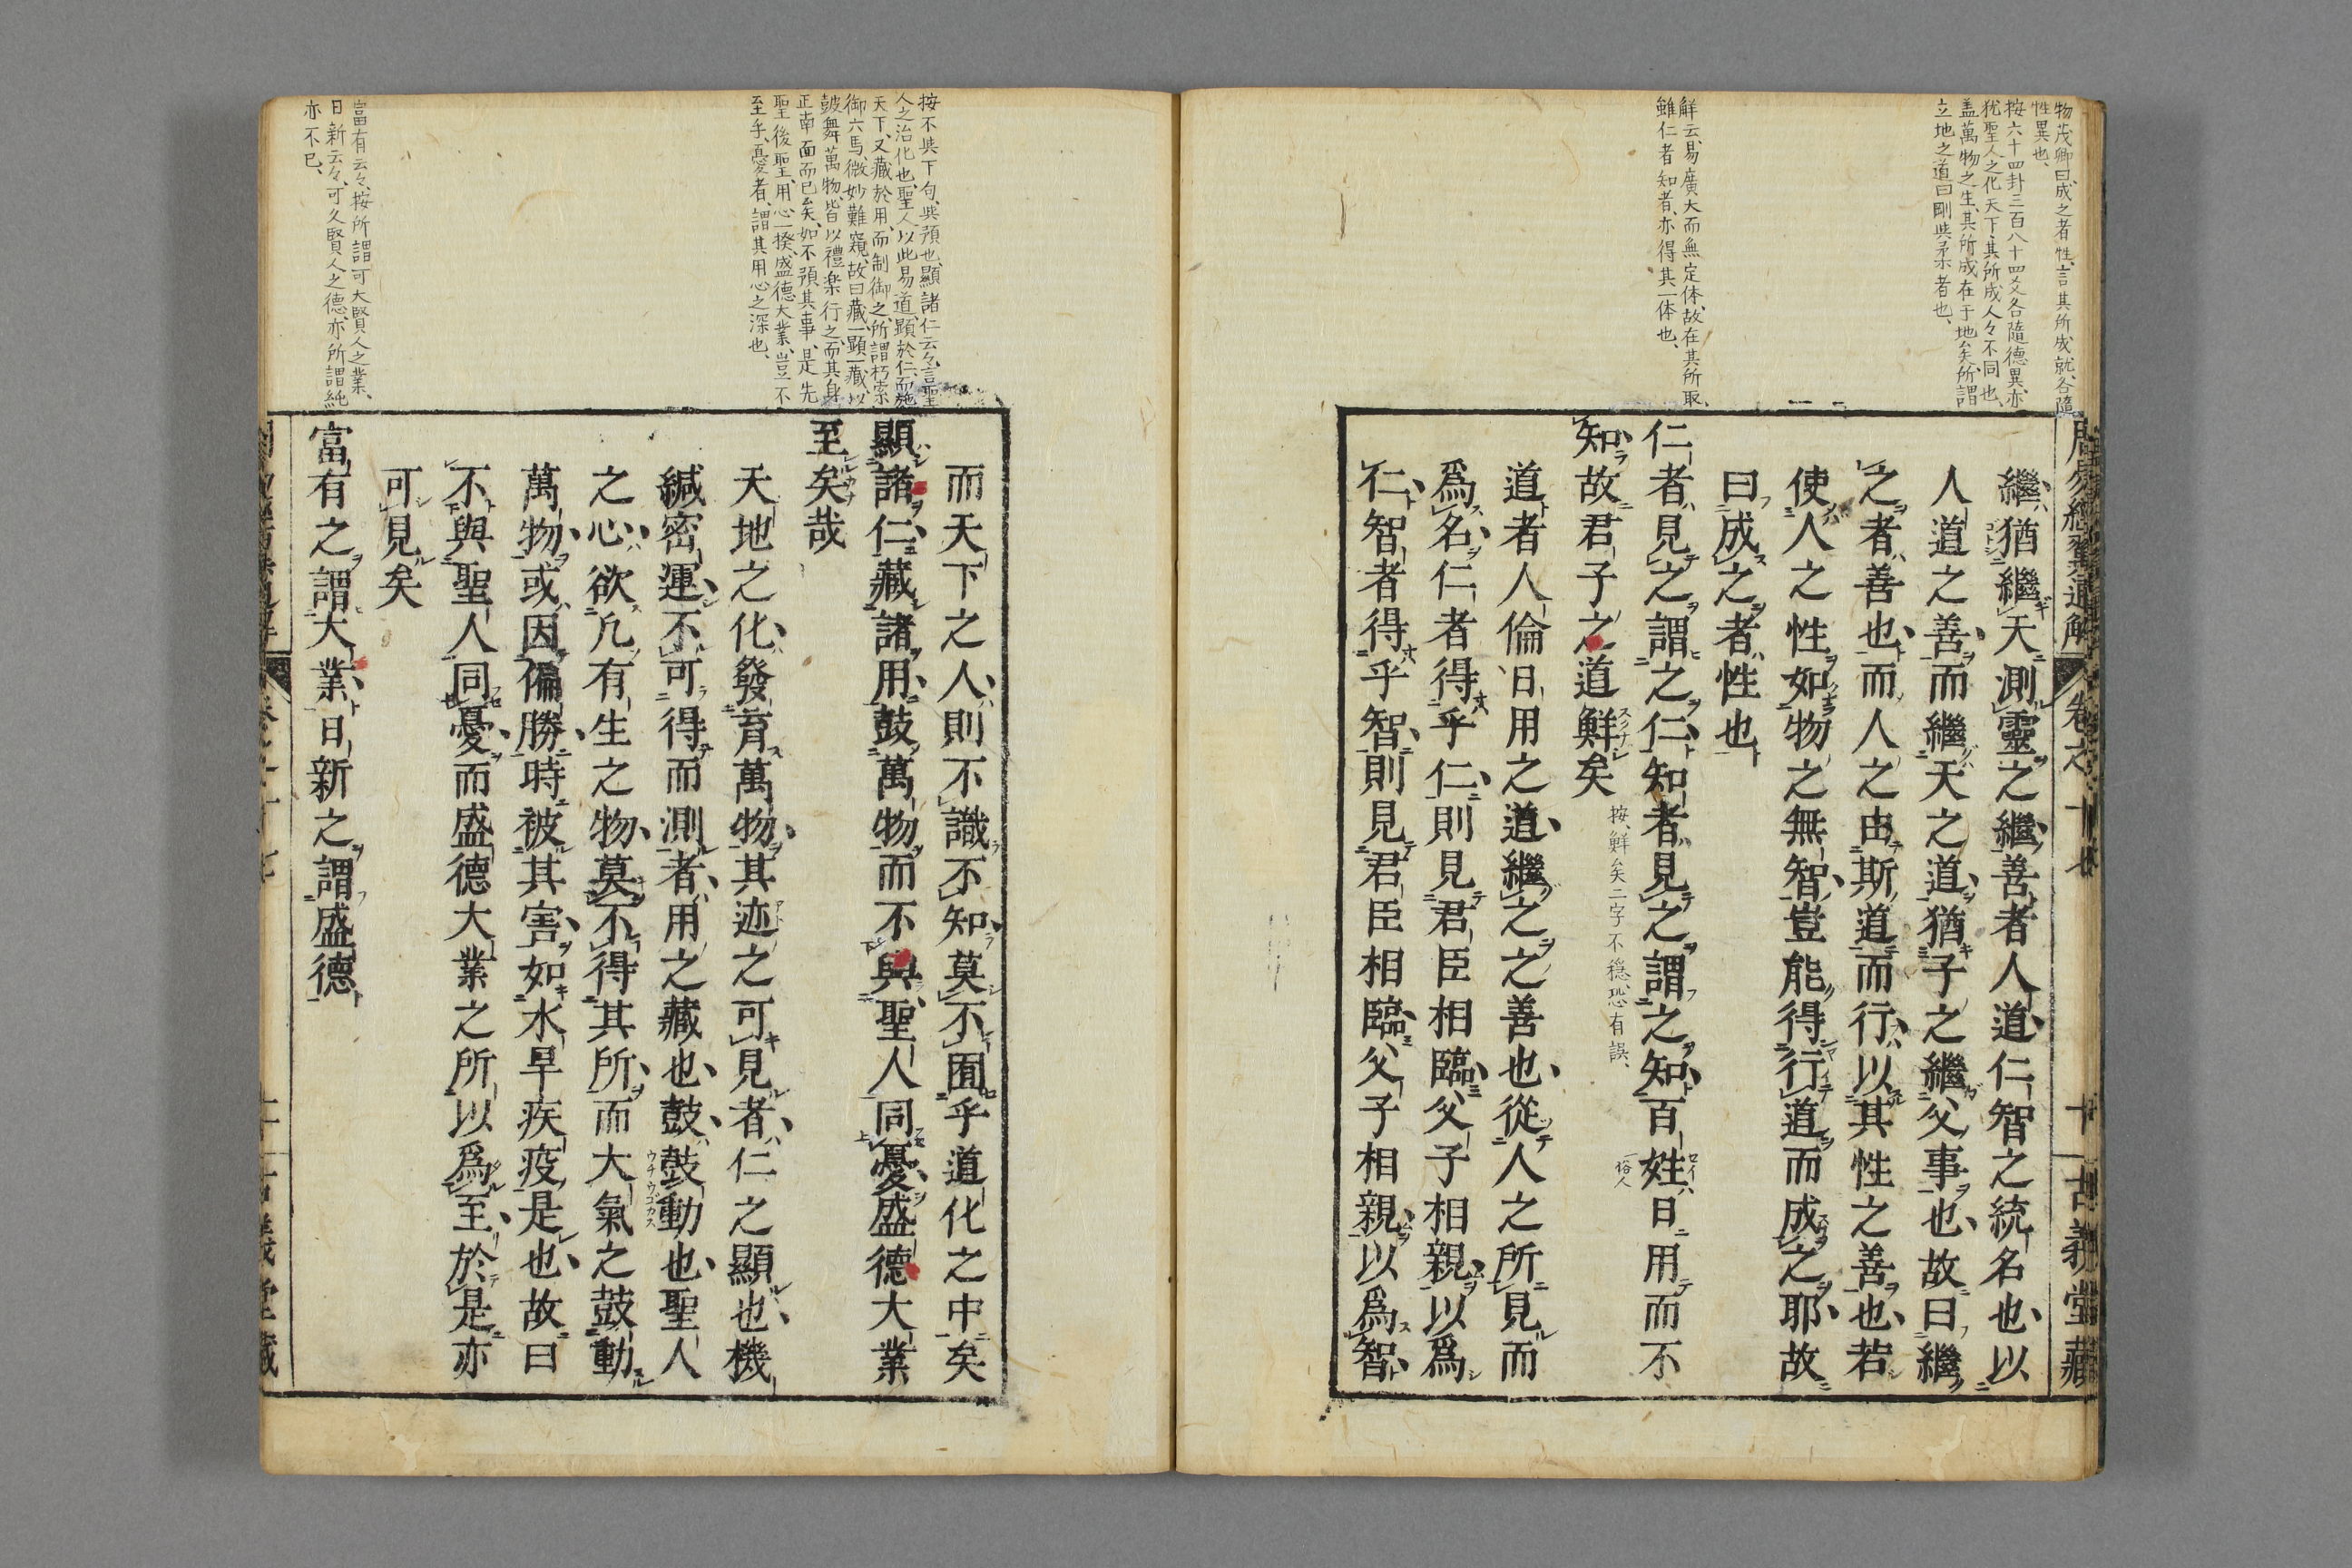 物茂卿曰、成之者性、言其所成就、各隨
性異也、
按六十四卦三百八十四爻各隨德異、亦
犹聖人之化天下、其所成人々不同也、
盖萬物之生、其所成在于地矣、所謂
立地之道曰剛與柔者也、
解云、易廣大而無定体、故在其所取、
雖仁者知者、亦得其一体也、
周易經翼通解 卷之十七 十一 古義堂藏
繼猶繼天測靈之繼善者人道仁智之統名也以
人道之善而繼天之道猶子之繼父事也故曰繼
之者善也而人之由斯道而行以其性之善也若
使人之性如物之無智豈能得行道而成之耶故
曰成之者性也
仁者見之謂之仁知者見之謂之知百姓日用而不
知故君子之道鮮矣
按、鮮矣二字不穩、恐有誤、
道者人倫日用之道繼之之善也從人之所見而
爲名仁者得乎仁則見君臣相臨父子相親以爲
仁智者得乎智則見君臣相臨父子相親以爲智
按不與下句、與預也、顯諸仁云々、言聖
人之治化也、聖人以此易道、顯於仁而施
天下、又藏於用、而制御之、所謂朽索
御六馬、微妙難窺、故曰藏、一顯一藏、以
鼓舞萬物、皆以禮楽行之、而其身
正南面而已矣、如不預其事、是先
聖後聖、用心一揆、盛德大業、豈不
至乎、憂者、謂其用心之深也、
富有云々、按所謂可大賢人之業、
日新云々、可久賢人之德、亦所謂純
亦不已、
而天下之人則不識不知莫不囿乎道化之中矣
顯諸仁藏諸用鼓萬物而不與聖人同憂盛德大業
至矣哉
天地之化發育萬物其迹之可見者仁之顯也機
緘密運不可得而測者用之藏也鼓鼓動也聖人
之心欲凡有生之物莫不得其所而大氣之鼓動
萬物或因偏勝時被其害如水旱疾疫是也故曰
不與聖人同憂而盛德大業之所以爲至於是亦
可見矣
富有之謂大業日新之謂盛德